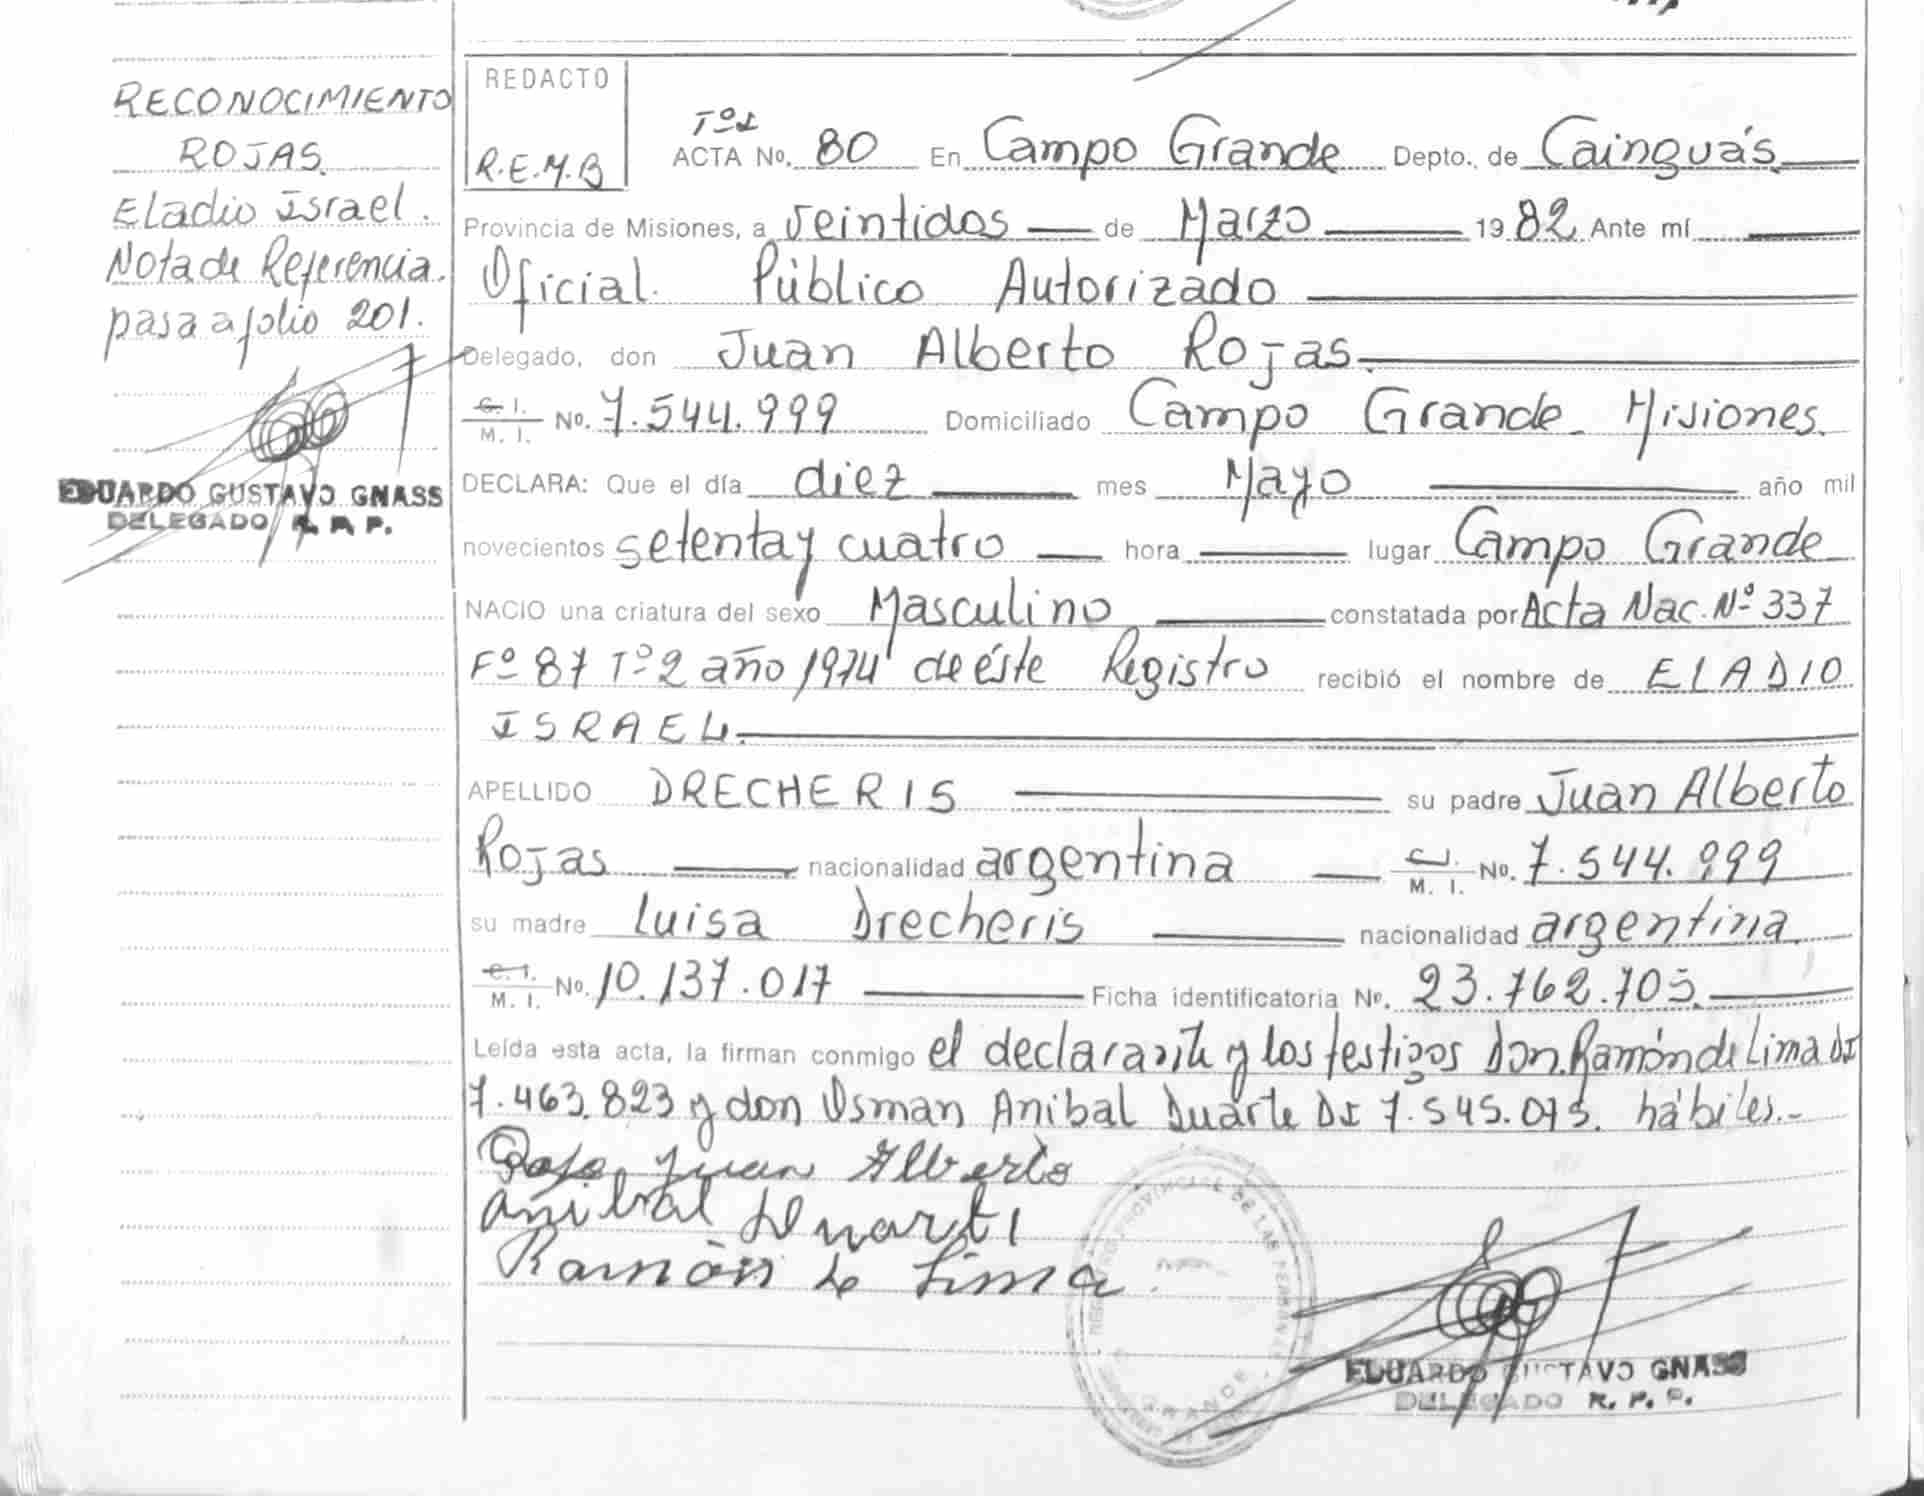 RECONOCIMIENTO
ROJAS.
Eladio Israel.
Nota de Referencia.
pasa a folio 201.
EDUARDO GUSTAVO GNASS
DELEGADO R. P. P.
REDACTO
R.E.M.B
Tº1
ACTA No. 80 En Campo Grande Depto. de Cainguás
Provincia de Misiones, a veintidos de Marzo 1982 Ante mí
Oficial Público Autorizado
Delegado, don Juan Alberto Rojas.
C. I. / M. I. No. 7.544.999 Domiciliado Campo Grande Misiones.
DECLARA: Que el día diez mes Mayo año mil
novecientos setenta y cuatro hora lugar Campo Grande
NACIO una criatura del sexo Masculino constatada por Acta Nac. Nº 337
Fº 87 Tº 2 año 1974 de éste Registro recibió el nombre de ELADIO
ISRAEL.
APELLIDO DRECHERIS su padre Juan Alberto
Rojas nacionalidad argentina C. I. / M. I. No. 7.544.999
su madre Luisa Drecheris nacionalidad argentina.
C. I. / M. I. No. 10.137.017 Ficha identificatoria No. 23.762.705.
Leída esta acta, la firman conmigo el declarante y los testigos Don. Ramón de Lima DI
7.463.823 y don Osman Anibal Duarte DI 7.545.075. hábiles.-
Rojas Juan Alberto
Anibal Duarte
Ramón de Lima
PROVINCIAL DE LAS PERSONAS
GRANDE
EDUARDO GUSTAVO GNASS
DELEGADO R. P. P.